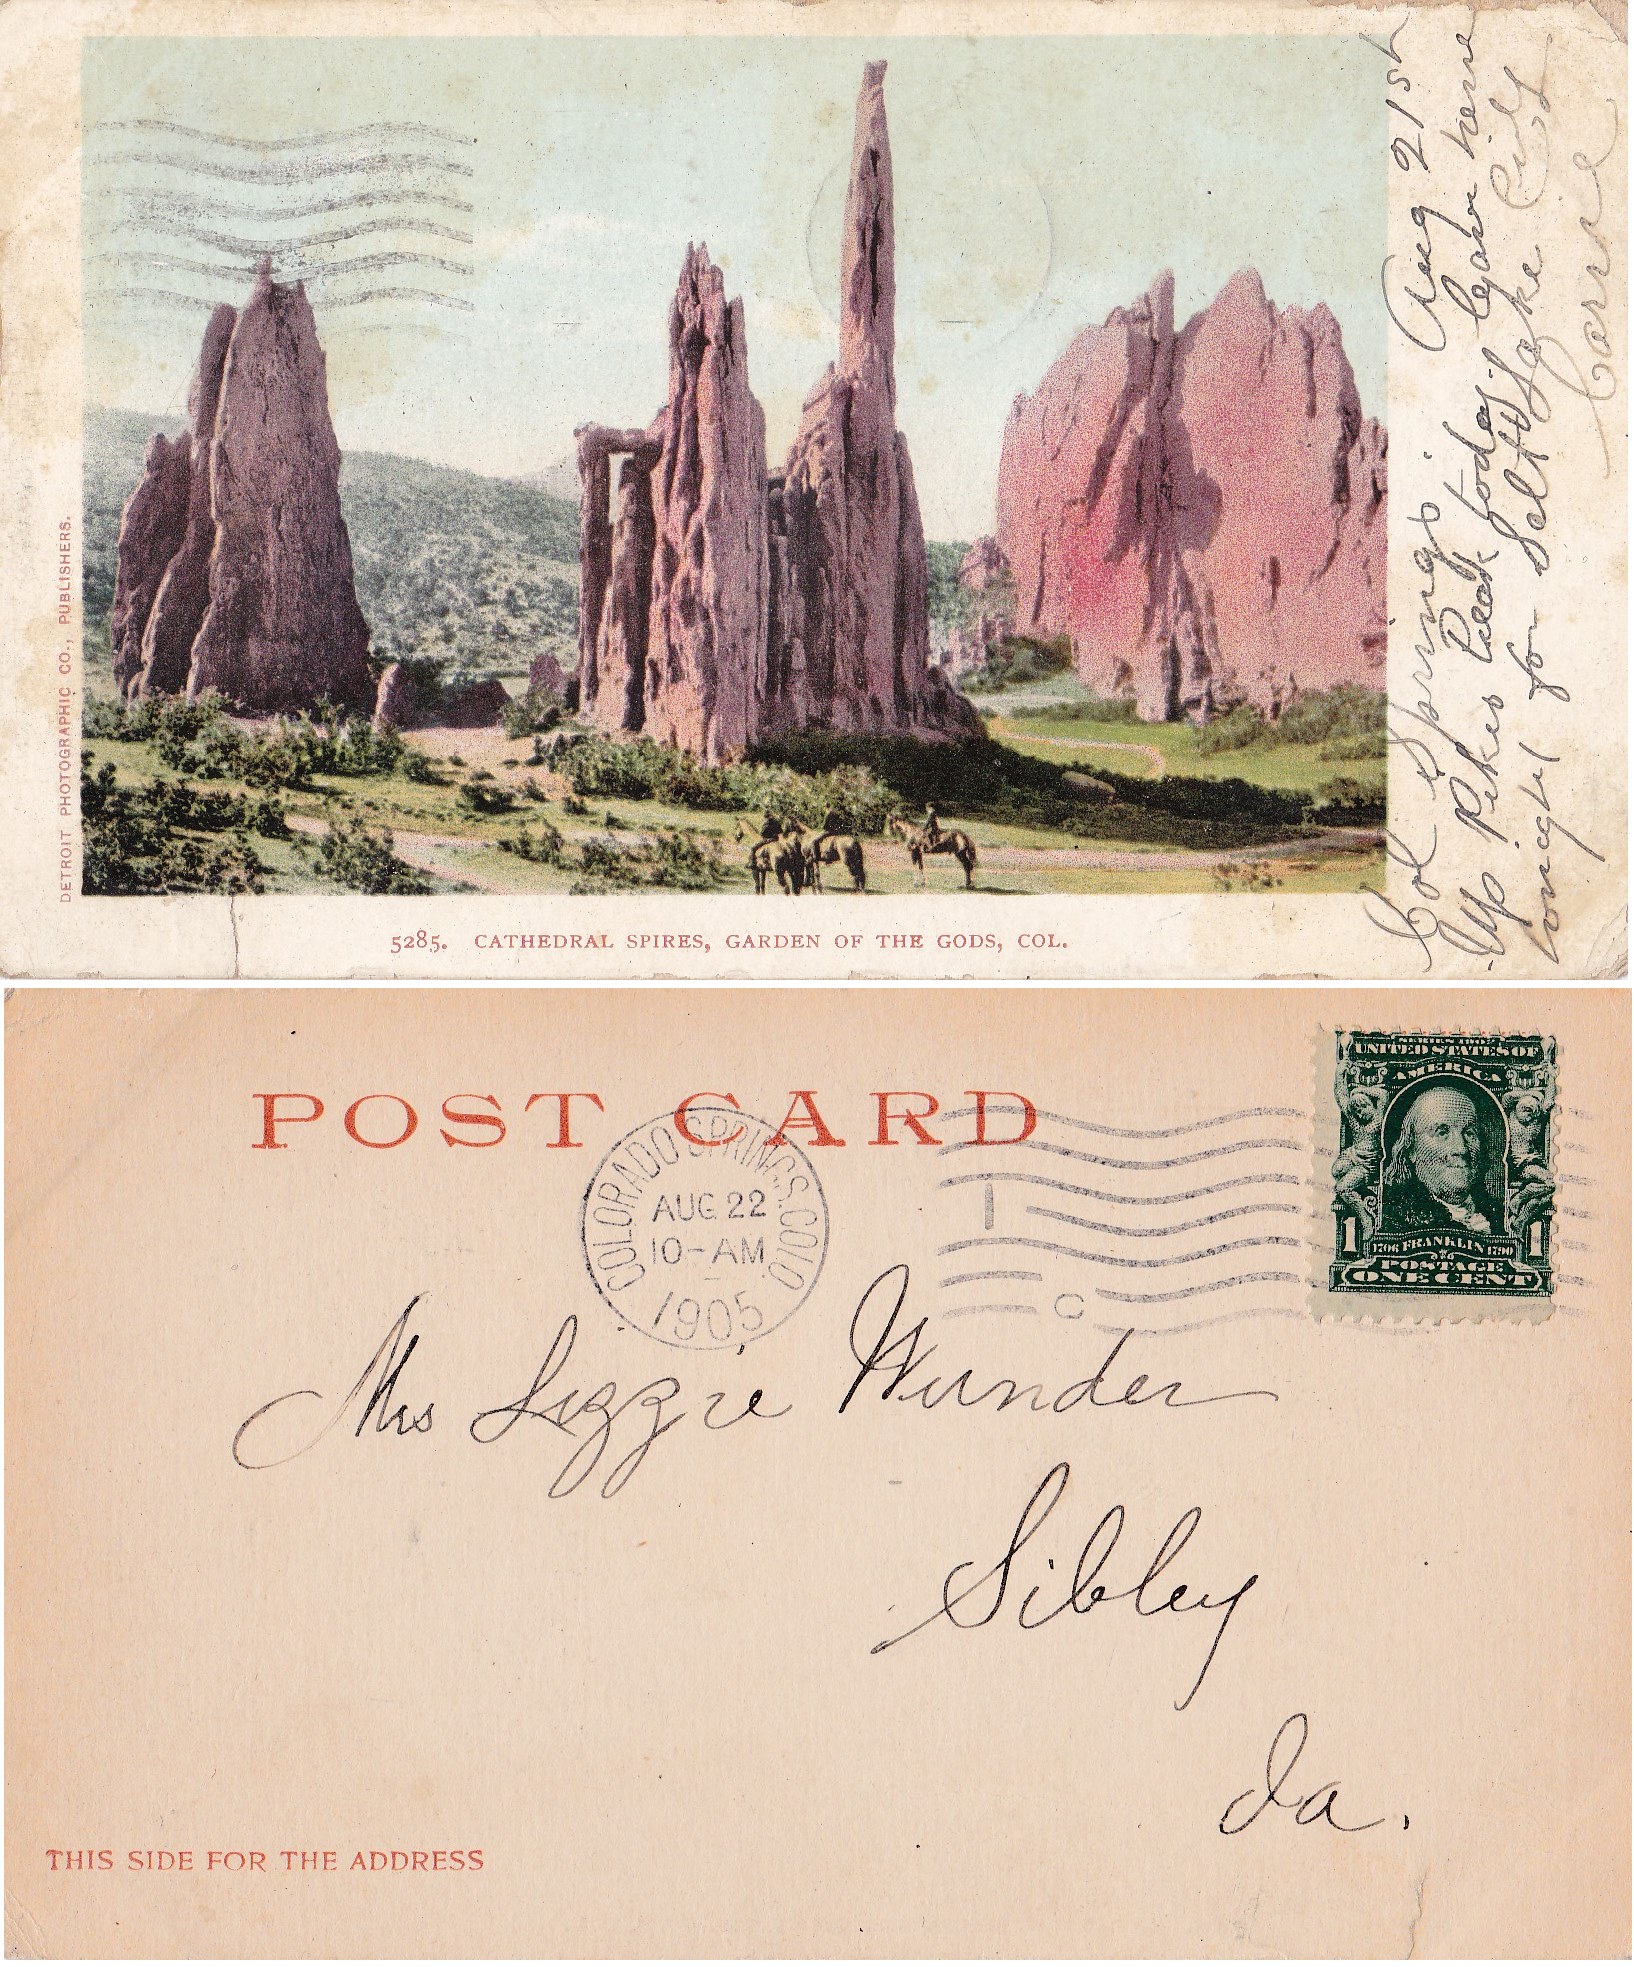 DETROIT PHOTOGRAPHIC CO., PUBLISHERS.
5285. CATHEDRAL SPIRES, GARDEN OF THE GODS, COL.
Col Springs. Aug 21st
Up Pikes Peak today leave here
tonight for Salt Lake City
Carrie
POST CARD
COLORADO SPRINGS. COLO.
AUG 22
10-AM
1905
SERIES 1902
UNITED STATES OF
AMERICA
1706 FRANKLIN 1790
1 1
POSTAGE
ONE CENT
Mrs Lizzie Wunder
Sibley
Ia.
THIS SIDE FOR THE ADDRESS